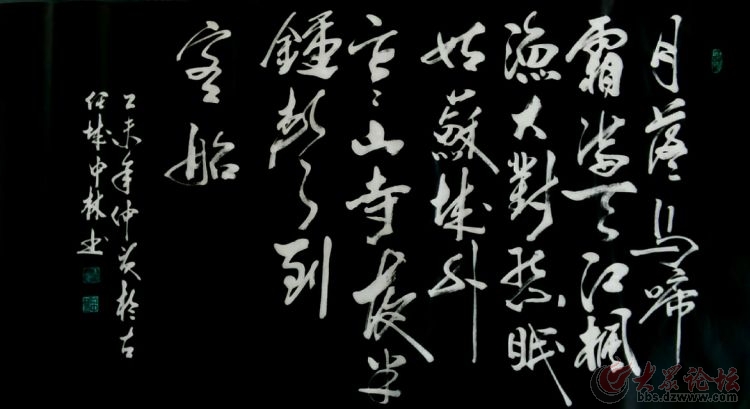 月落烏啼
霜滿天江楓
漁火對愁眠
姑蘇城外
寒山寺夜半
鍾聲到
客船
乙未年仲炎於古
任城中林书
大众论坛
bbs.dzwww.com